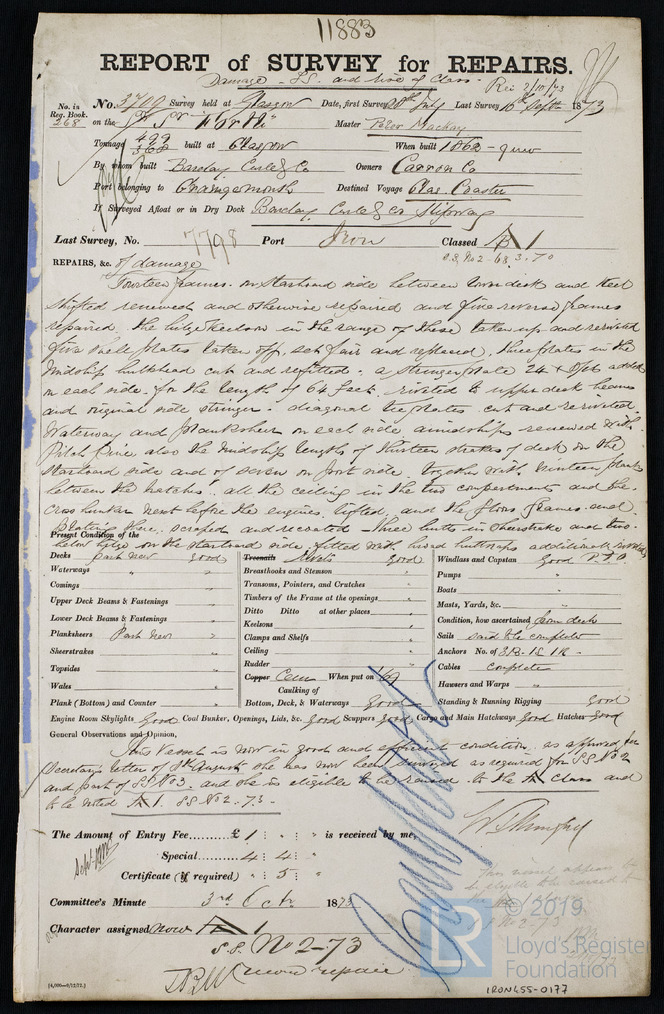 11883
REPORT of SURVEY for REPAIRS.
Damage - SS. and rise of Class. Rec 2/10/73
No. in Reg. Book. 268
No. 3709 Survey held at Glasgow Date, first Survey 28th July Last Survey 16th Septr 1873
on the Master Peter Mackay
Tonnage 499 368 built at Glasgow When built 1862
By whom built Barclay Curle & Co Owners Carron Co
Port belonging to Grangemouth Destined Voyage Glas. Coaster
If Surveyed Afloat or in Dry Dock Barclay, Curle & Co Slipway
Last Survey, No. 7798 Port Iron Classed A 1
S.S. No 2. 68 3.70
REPAIRS, &c. of damage
Fourteen frames on starboard side between lower deck and keel
shifted renewed and otherwise repaired and five reverse frames
repaired. the bilge keelson in the range of these taken up and rerivited
five shell plates taken off, set fair and replaced, three plates in the
midship bulkhead cut and refitted. a stringer plate 24 x 7/16 added
on each side for the length of 64 feet. rivited to upper deck beams
and original side stringer. diagonal tie plates cut and rerivited.
Waterway and planksheer on each side amidships renewed with
Pitch Pine also the midship lengths of thirteen strakes of deck on the
starboard side and of seven on port side. together with nineteen planks
between the hatches. all the ceiling in the two compartments and the
cross bunker next before the engines, lifted, and the floors frames and
plating there, scraped and recoated. Three butts in sheerstrake and two
below bilge on the starboard side, fitted with broad buttstraps additional
Present Condition of the
Decks part new good
Waterways "
Comings "
Upper Deck Beams & Fastenings "
Lower Deck Beams & Fastenings "
Planksheers Part new "
Sheerstrakes "
Topsides "
Wales "
Plank (Bottom) and Counter "
Treenails Rivets good
Breasthooks and Stemson "
Transoms, Pointers, and Crutches "
Timbers of the Frame at the openings "
Ditto Ditto at other places "
Keelsons "
Clamps and Shelfs "
Ceiling "
Rudder "
Copper Cem When put on /69
Caulking of
Bottom, Deck, & Waterways Good
Windlass and Capstan Good P.T.O
Pumps "
Boats "
Masts, Yards, &c. "
Condition, how ascertained from deck
Sails said to be complete
Anchors No. of 3B. 1S. 1K.
Cables complete
Hawsers and Warps "
Standing & Running Rigging good
Engine Room Skylights Good Coal Bunker, Openings, Lids, &c. Good Scuppers Good Cargo and Main Hatchways Good Hatches Good
General Observations and Opinion,
This vessel is now in good and efficient condition. as approved per
Secretarys letter of 8th August she has now been surveyed as required for S.S. No 2
and part of SS No 3. and she is eligible to be raised to the A class and
to be noted A 1. SS No 2. 73.
The Amount of Entry Fee......£ 1 : " : " is received by me,
Special...... 4 : 4 : "
Certificate (if required) " : 5 : "
Committee's Minute 3rd Octr 1873
Character assigned now A 1
S.S. No 2-73
[4,000—9/12/72.]
© 2019
LR
Lloyd's Register
Foundation
IRON455-0177